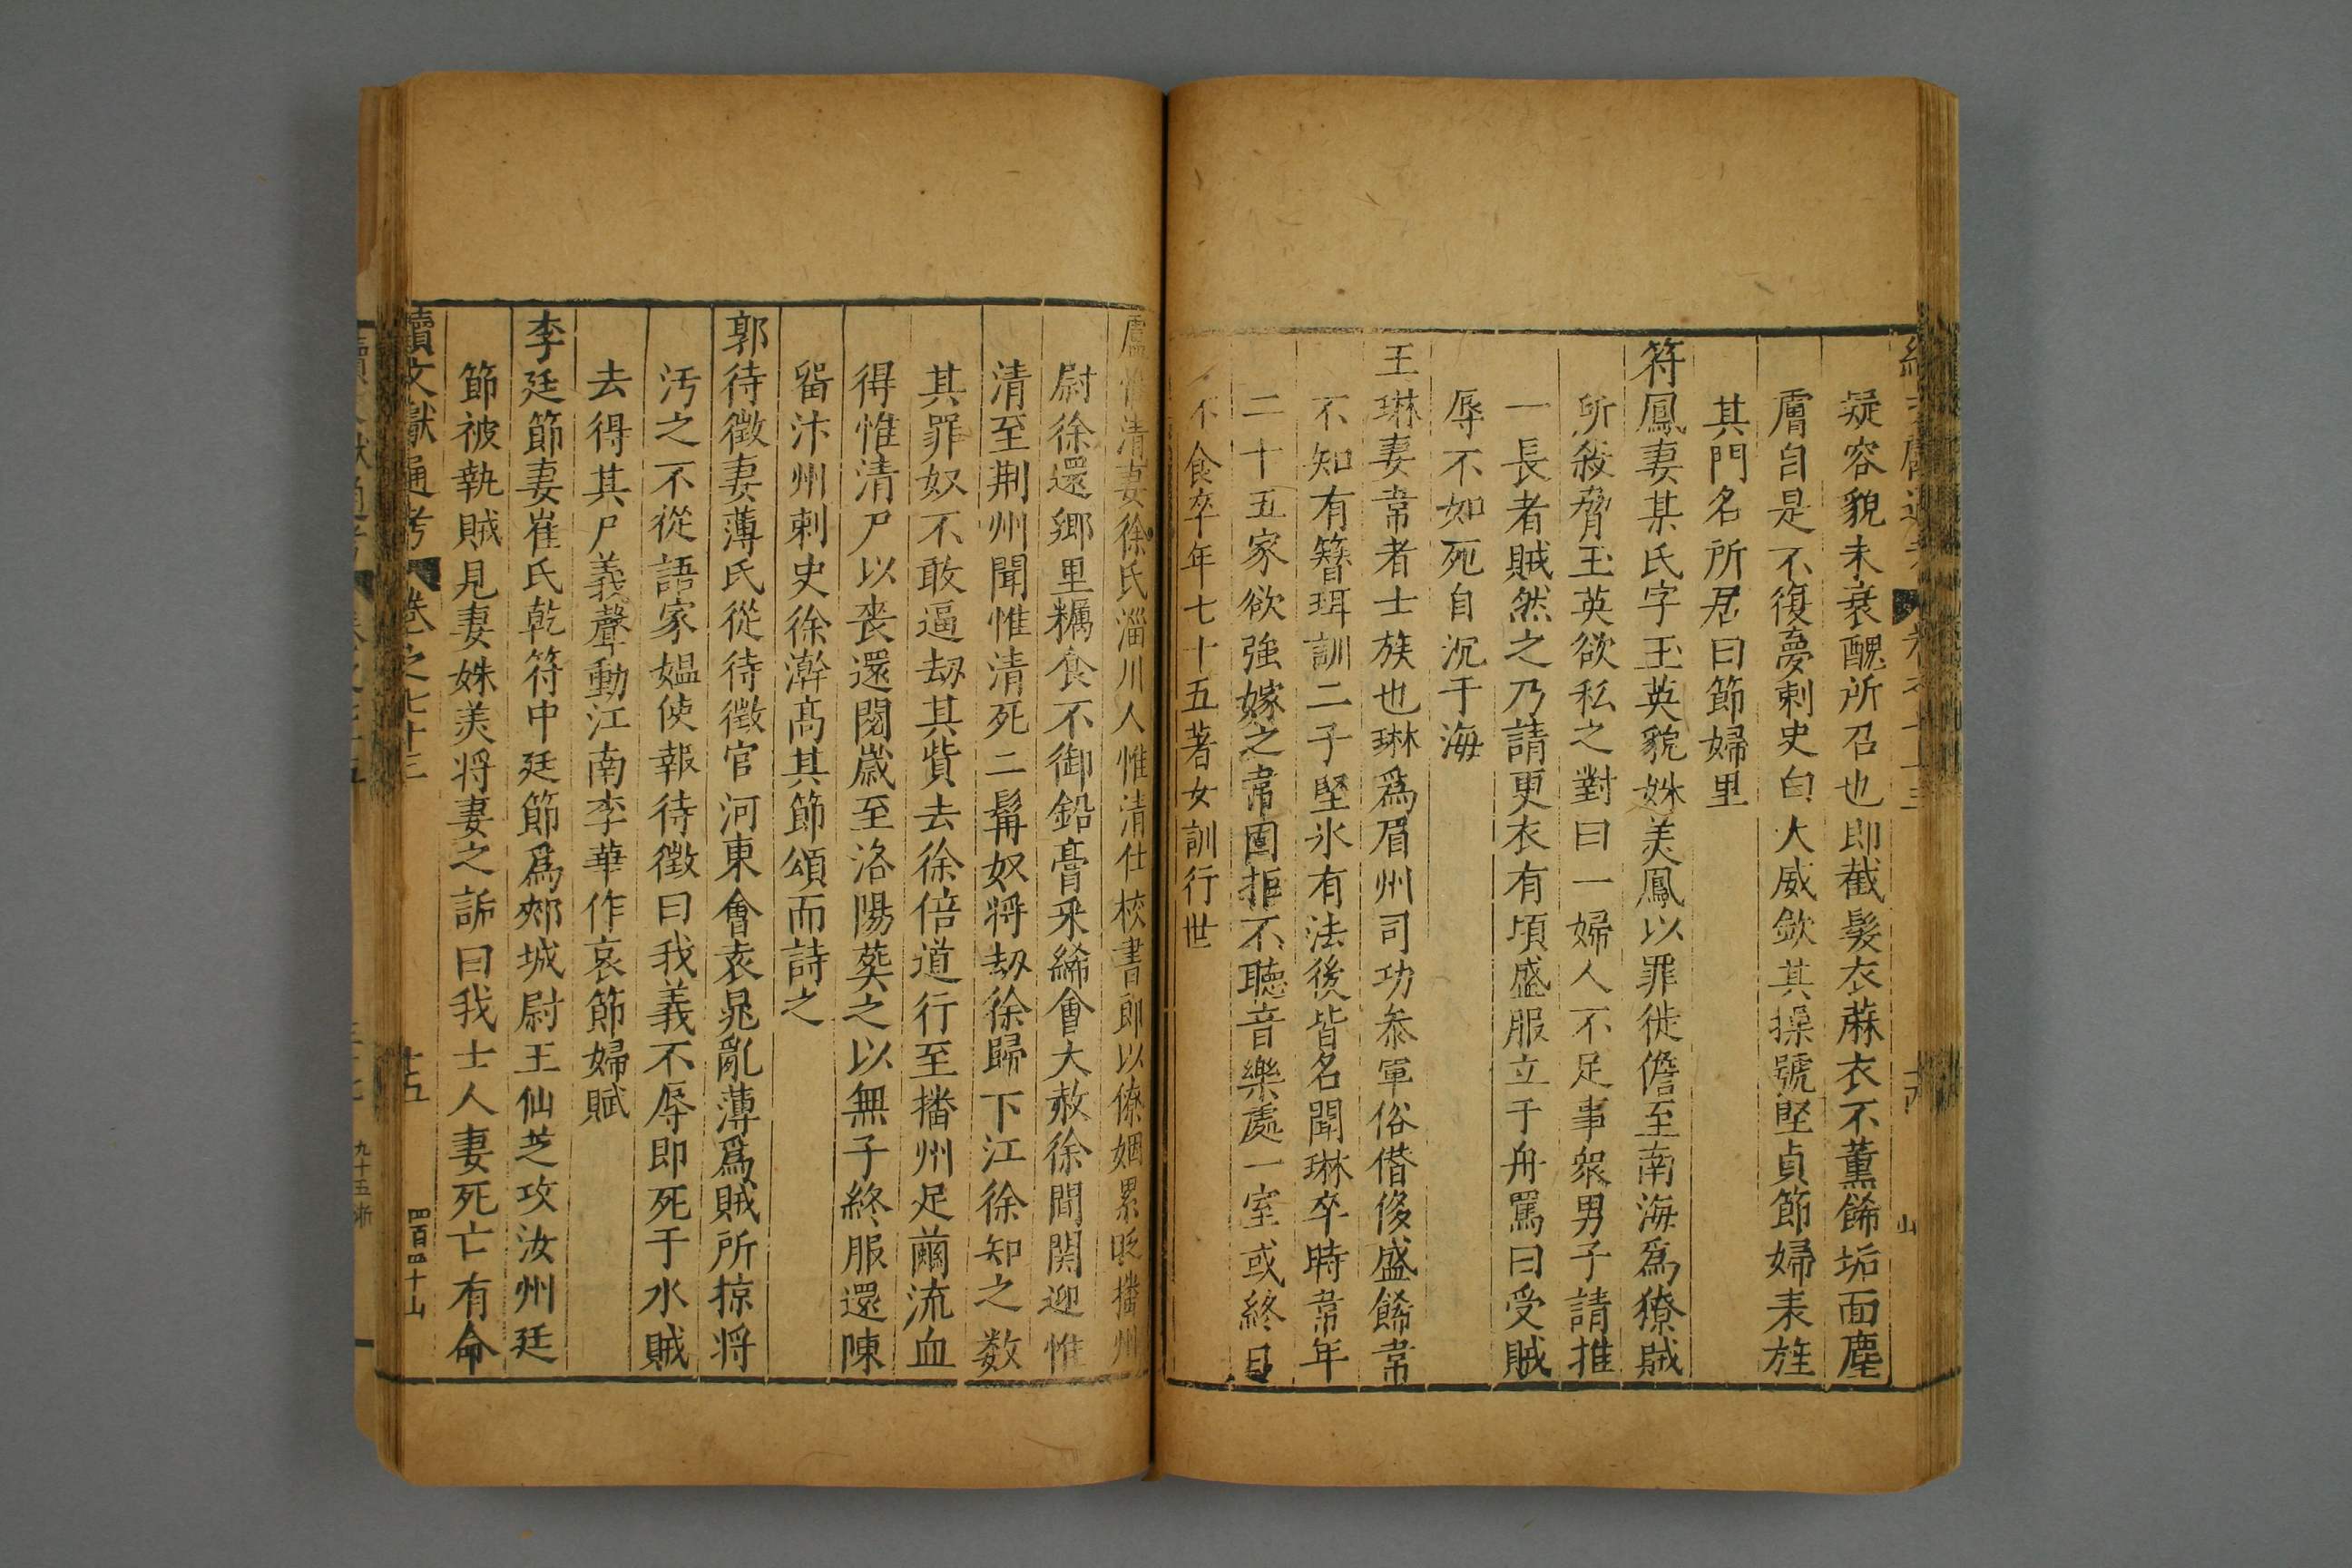 疑容貌未衰醜所召也即截髮衣蔴衣不薰餙垢面塵
膚自是不復夢刺史白大威欽其操號堅貞節婦表旌
其門名所居曰節婦里
符鳳妻某氏字玉英貌姝美鳳以罪徙儋至南海爲獠賊
所殺脅玉英欲私之對曰一婦人不足事衆男子請推
一長者賊然之乃請更衣有頃盛服立于舟罵曰受賊
辱不如死自沉于海
王琳妻韋者士族也琳爲眉州司功叅軍俗僭侈盛餙韋
不知有簪珥訓二子堅氷有法後皆名聞琳卒時韋年
二十五家欲強嫁之韋固拒不聽音樂處一室或終日
不食卒年七十五著女訓行世
盧惟清妻徐氏淄川人惟清仕校書郎以僚姻累貶播州
尉徐還郷里糲食不御鉛膏采絺會大赦徐間関迎惟
清至荆州聞惟清死二髯奴将刼徐歸下江徐知之数
其罪奴不敢逼刼其貲去徐倍道行至播州足繭流血
得惟清尸以喪還閱嵗至洛陽葬之以無子終服還陳
畱汴州刺史徐澣髙其節頌而詩之
郭待徵妻薄氏從待徵官河東會袁晁亂薄爲賊所掠将
汚之不從語家媼使報待徵曰我義不辱即死于水賊
去得其尸義聲動江南李華作哀節婦賦
李廷節妻崔氏乾符中廷節爲郟城尉王仙芝攻汝州廷
節被執賊見妻姝美将妻之詬曰我士人妻死亡有命
續文獻通考 卷之七十三 十五 四百四十山